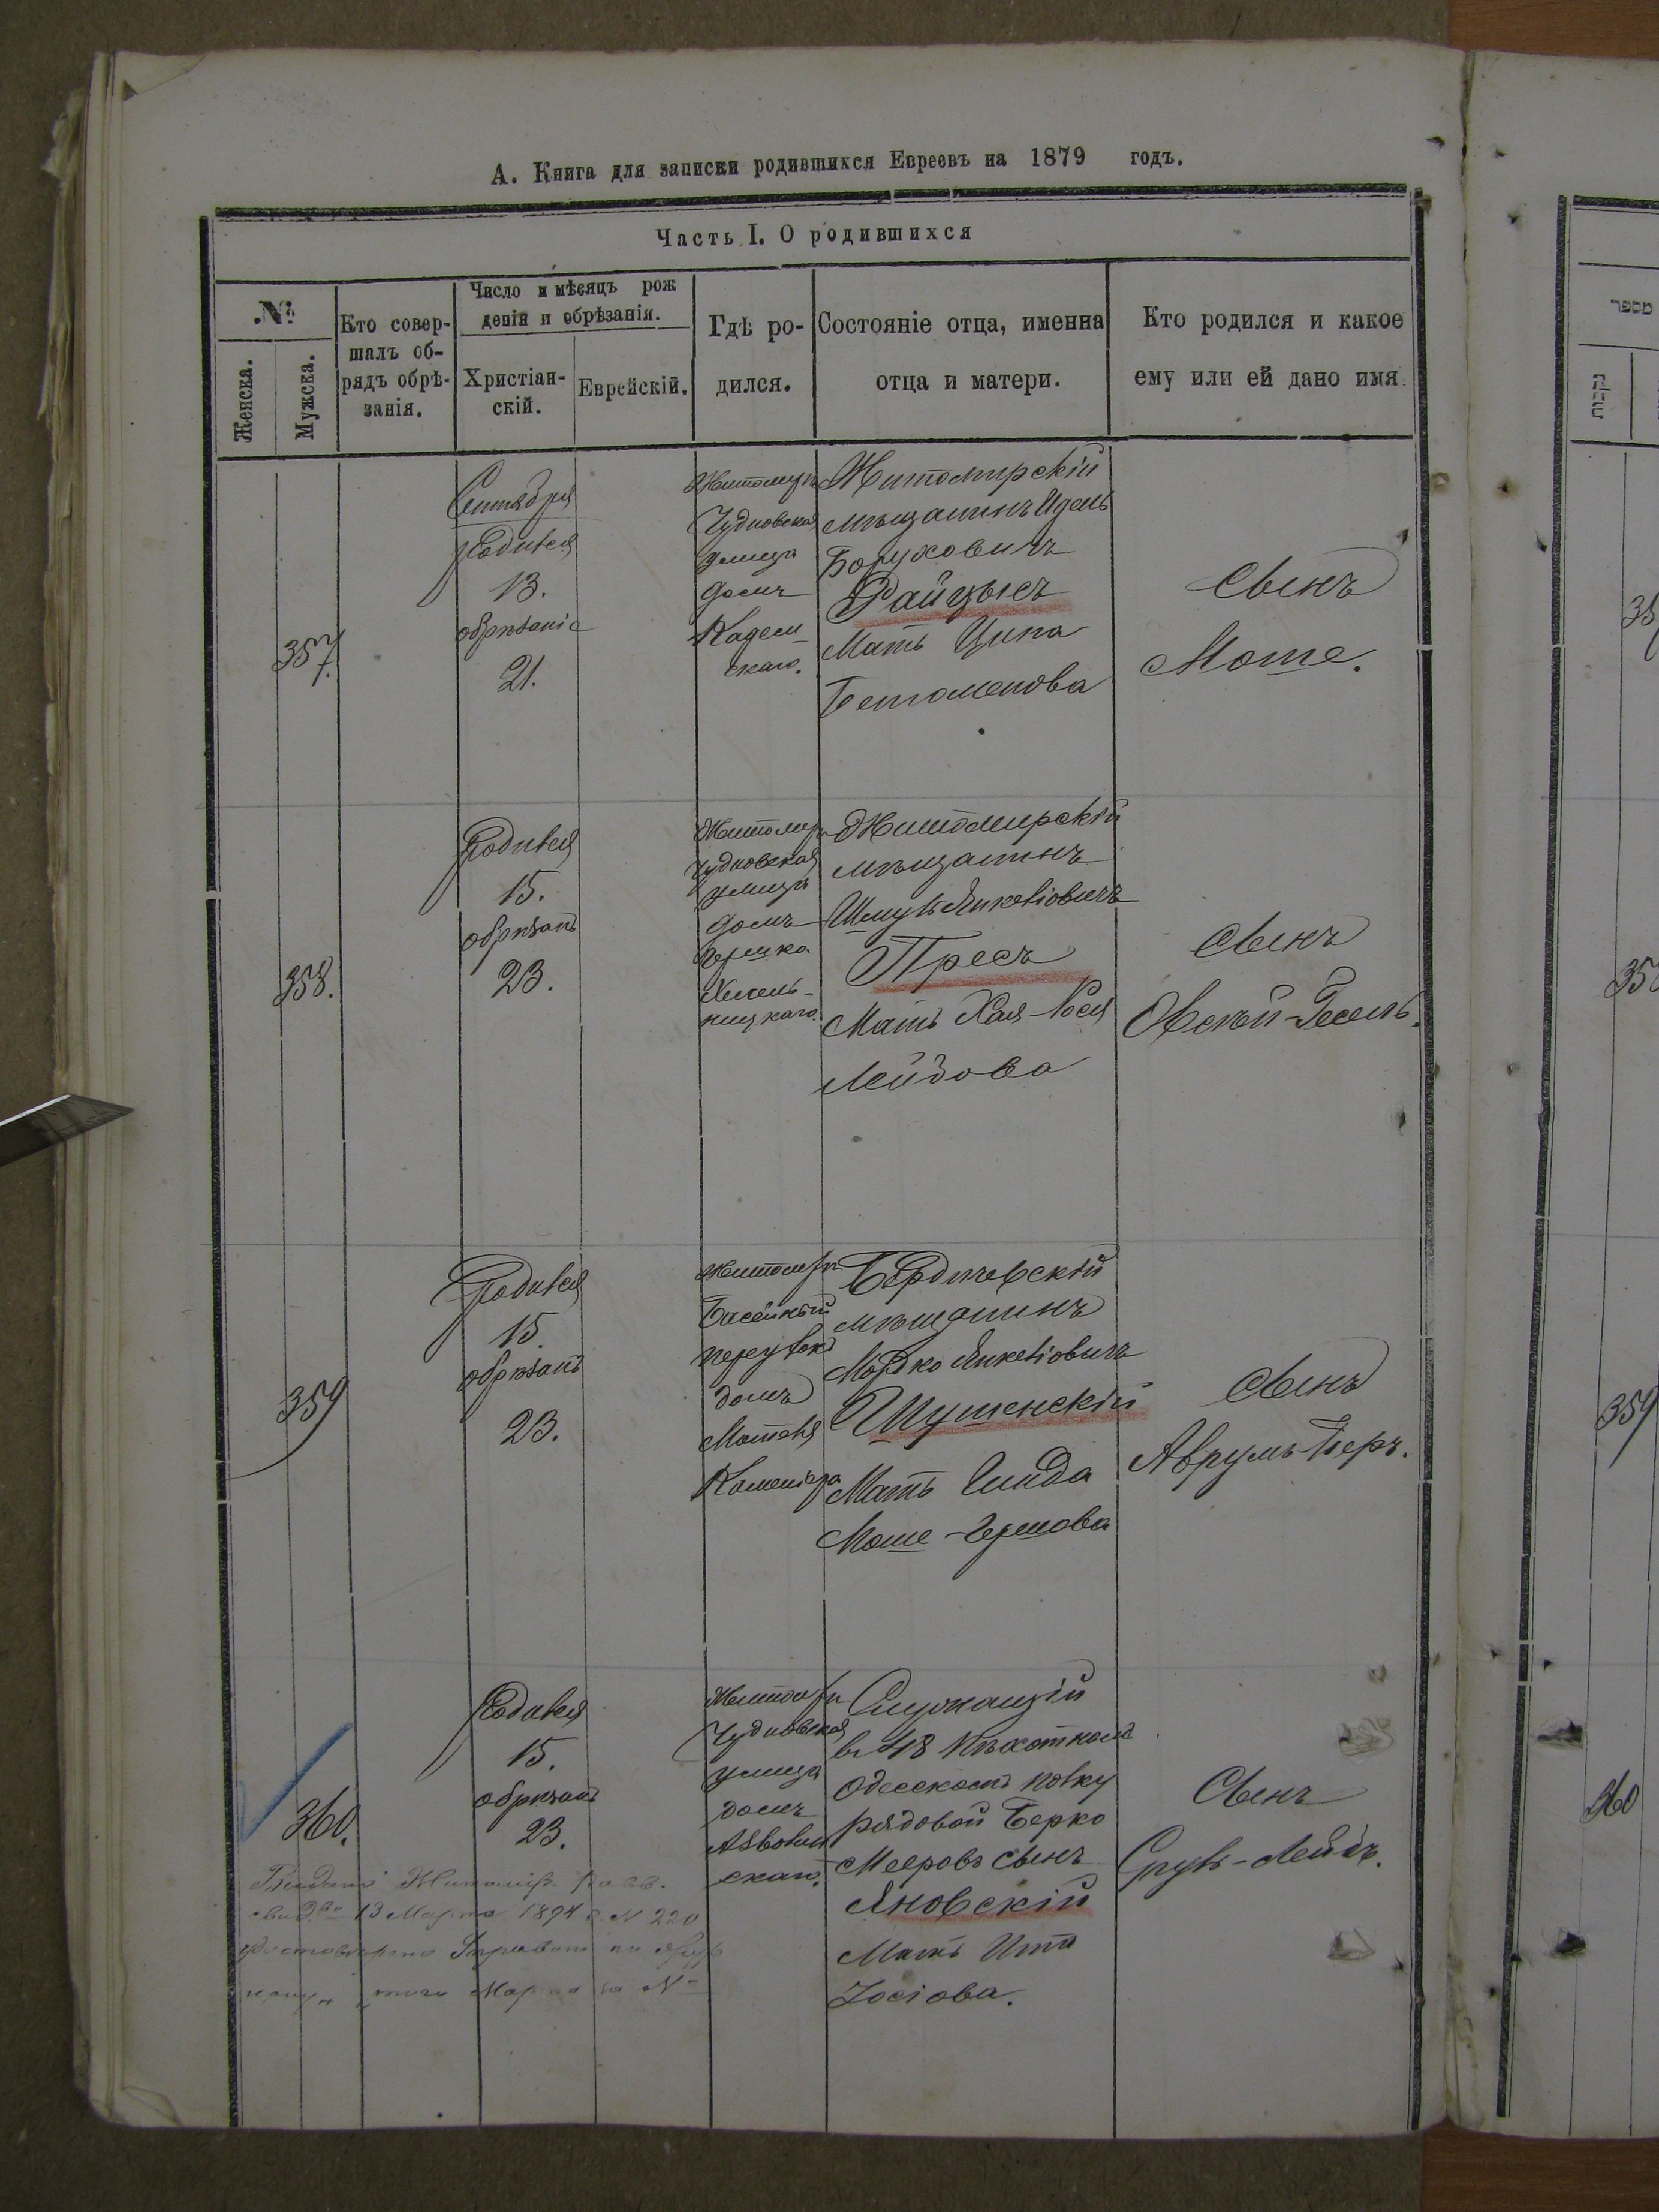 А. Книга для записки родившихся Евреевъ на 1879 годъ.
Часть I. О родившихся
№
Женска.
Мужска.
Кто совер-
шалъ об-
рядъ обрѣ-
занія.
Число и мѣсяцъ рож
денія и обрѣзанія.
Христіан-
скій.
Еврейскій.
Гдѣ ро-
дился.
Состояніе отца, именна
отца и матери.
Кто родился и какое
ему или ей дано имя
מספר
נקבות
357.
Сентября
родился
13.
обрѣзаніе
21.
Житомиръ
Чудновская
улица
домъ
Кадем-
скаго.
Житомирскій
мѣщанинъ Идель
Боруховичъ
Райцысъ
Мать Ципа
Сынъ
Моше.
358.
родился
15.
обрѣзанъ
23.
Житомиръ
Чудновская
улица
домъ
Гершка
Хмель-
ницкаго.
Житомирскій
мѣщанинъ
Шмуль Янкеліовичъ
Пресъ
Мать Хая-Лея
Лейзова
Сынъ
Овсѣй-Гесель.
358
359
родился
15.
обрѣзанъ
23.
Житомиръ
переулокъ
домъ
Мотеля
Бердичевскій
мѣщанинъ
Мордко Янкеліовичъ
Шушенскій
Мать Гинда
Моше-Гершова
Сынъ
Аврумъ-Беръ.
359
360.
родился
15.
обрѣзанъ
23.
Житомиръ
Чудновская
улица
домъ
скаго.
Служащій
въ 48 пѣхотномъ
Одесскомъ полку
рядовой Берко
Мееровъ сынъ
Яновскій
Мать Ита
Іосіова.
Сынъ
Сруль-Лейбъ.
360
13 Марта 1894 г. N 220
Марта за N